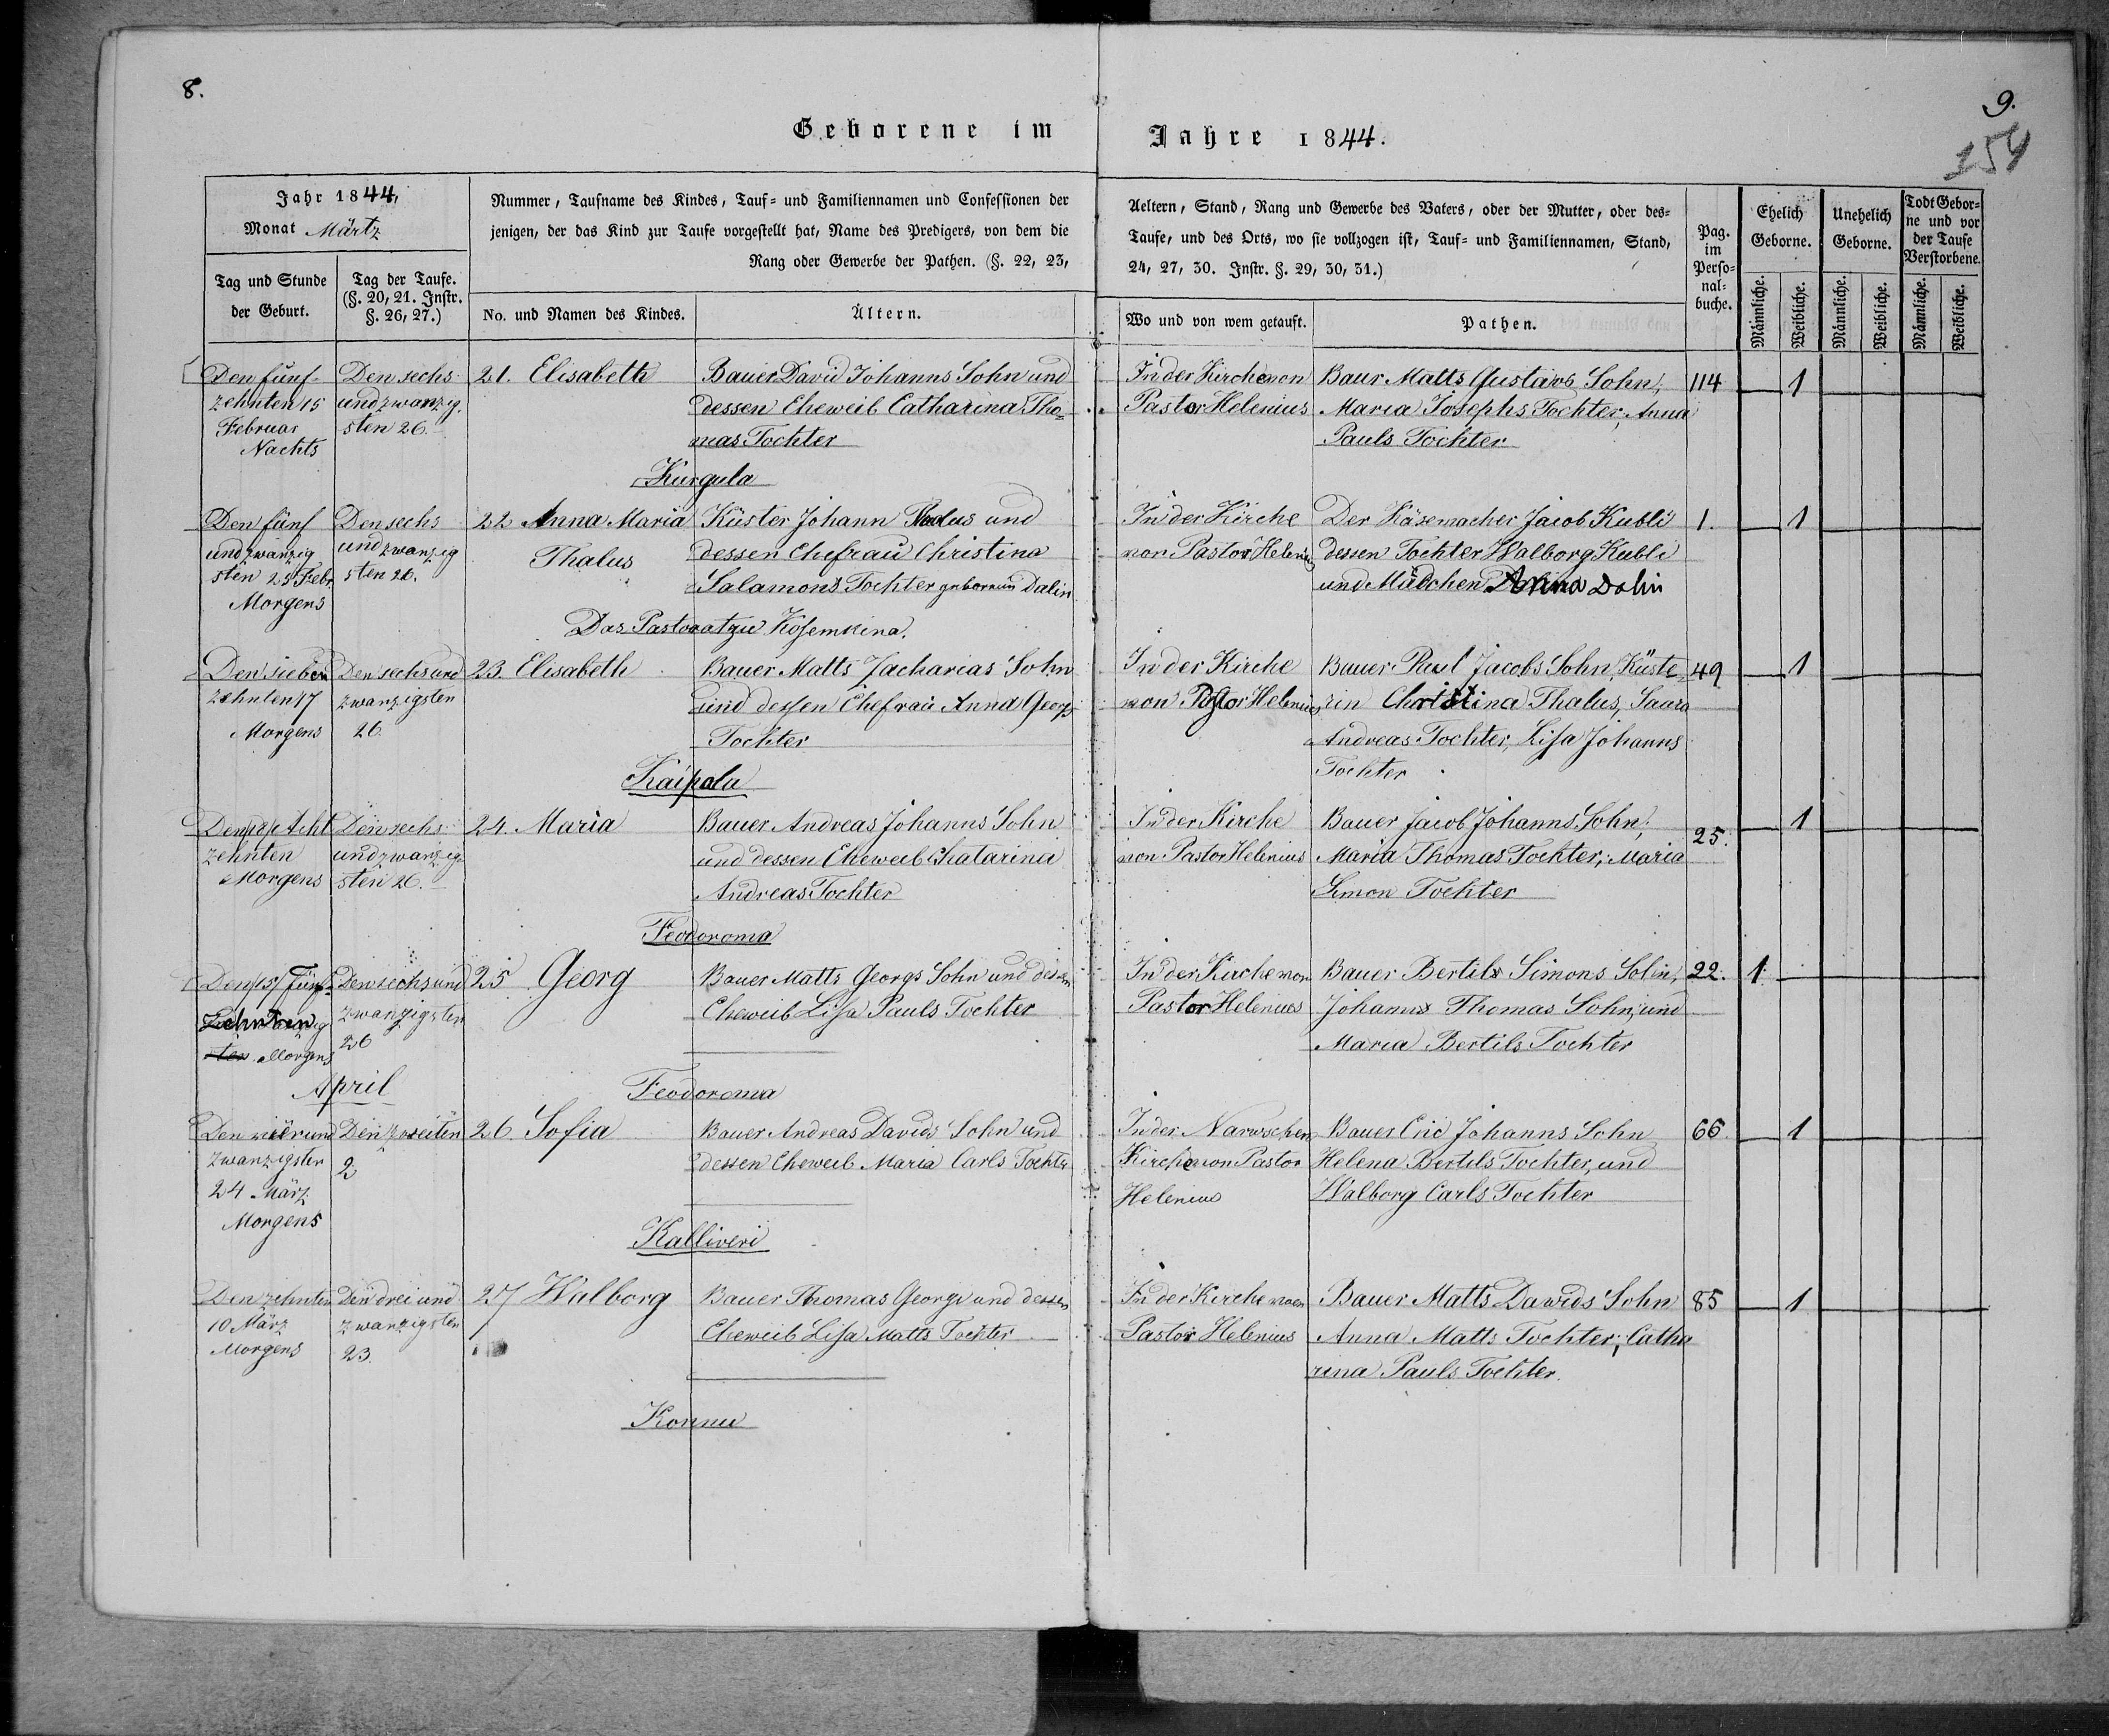 8.
9.
254
Geborene im Jahre 1844.
Jahr 1844,
Monat Märtz
Tag und Stunde der Geburt.
Tag der Taufe. (§. 20, 21. Instr. §. 26, 27.)
Nummer, Taufname des Kindes, Tauf- und Familiennamen und Confessionen der
jenigen, der das Kind zur Taufe vorgestellt hat, Name des Predigers, von dem die
Rang oder Gewerbe der Pathen. (§. 22, 23,
No. und Namen des Kindes.
Ältern.
Aeltern, Stand, Rang und Gewerbe des Vaters, oder der Mutter, oder des-
Taufe, und des Orts, wo sie vollzogen ist, Tauf- und Familiennamen, Stand,
24, 27, 30. Instr. §. 29, 30, 31.)
Wo und von wem getauft.
Pathen.
Pag. im Perso-nal-buche.
Ehelich Geborne.
Unehelich Geborne.
Todt Gebor-ne und vor der Taufe Verstorbene.
Männliche.
Weibliche.
Männliche.
Weibliche.
Männliche.
Weibliche.
Den fünf-
zehnten 15
Februar
Nachts
Den sechs
und zwanzig
sten 26.
21. Elisabeth
Bauer David Johanns Sohn und
dessen Eheweib Catharina Tho-
mas Tochter
Kurgula
In der Kirche von
Pastor Helenius
Baur Matts Gustavs Sohn,
Maria Josephs Tochter, Anna
Pauls Tochter
114
1
Den fünf
und zwanzig
sten 25 Febr
Morgens
Den sechs
und zwanzig
sten 26.
22 Anna Maria
Thalus
Küster Johann Thalus und
dessen Ehefrau Christina
Salamons Tochter geborene Dalin
Das Pastorat zu Kosemkina.
In der Kirche
von Pastor Helenius
Der Käsemacher Jacob Kubli
dessen Tochter Walborg Kubli
und Mädchen Anna Dalin
1.
1
Den sieben
zehnten 17
Morgens
Den sechs und
zwanzigsten
26.
23. Elisabeth
Bauer Matts Zacharias Sohn
und dessen Ehefrau Anna Georgs
Tochter
Kaipala
In der Kirche
von Pastor Helenius
Bauer Paul Jacobs Sohn, Küste-
rin Christina Thalus, Saara
Andreas Tochter, Lisa Johanns
Tochter
49
1
Den /18/ Acht
zehnten
Morgens
Den sechs
und zwanzig
sten 26.
24. Maria
Bauer Andreas Johanns Sohn
und dessen Eheweib Chatarina
Andreas Tochter
Feodoroma
In der Kirche
von Pastor Helenius
Bauer Jacob Johanns Sohn,
Maria Thomas Tochter, Maria
Simon Tochter
25.
1
Den /15/ Fünf-
zehnten
sten Morgens
Den sechs und
zwanzigsten
26
25 Georg
Bauer Matts Georgs Sohn und dessen
Eheweib Lisa Pauls Tochter
Feodoroma
In der Kirche von
Pastor Helenius
Bauer Bertils Simons Sohn,
Johanns Thomas Sohn, und
Maria Bertils Tochter
22.
1.
April
Den vier und
zwanzigsten
24 März
Morgens
Den zweiten
2
26. Sofia
Bauer Andreas Davids Sohn und
dessen Eheweib Maria Carls Tochter
Kalliveri
In der Narwschen
Kirche von Pastor
Helenius
Bauer Eric Johanns Sohn
Helena Bertils Tochter, und
Walborg Carls Tochter
66.
1
Den zehnten
10 März
Morgens
Den drei und
zwanzigsten
23.
27 Walborg
Bauer Thomas Georgs und dessen
Eheweib Lisa Matts Tochter
Konnu
In der Kirche von
Pastor Helenius
Bauer Matts Dawids Sohn
Anna Matts Tochter, Catha
rina Pauls Tochter.
85
1